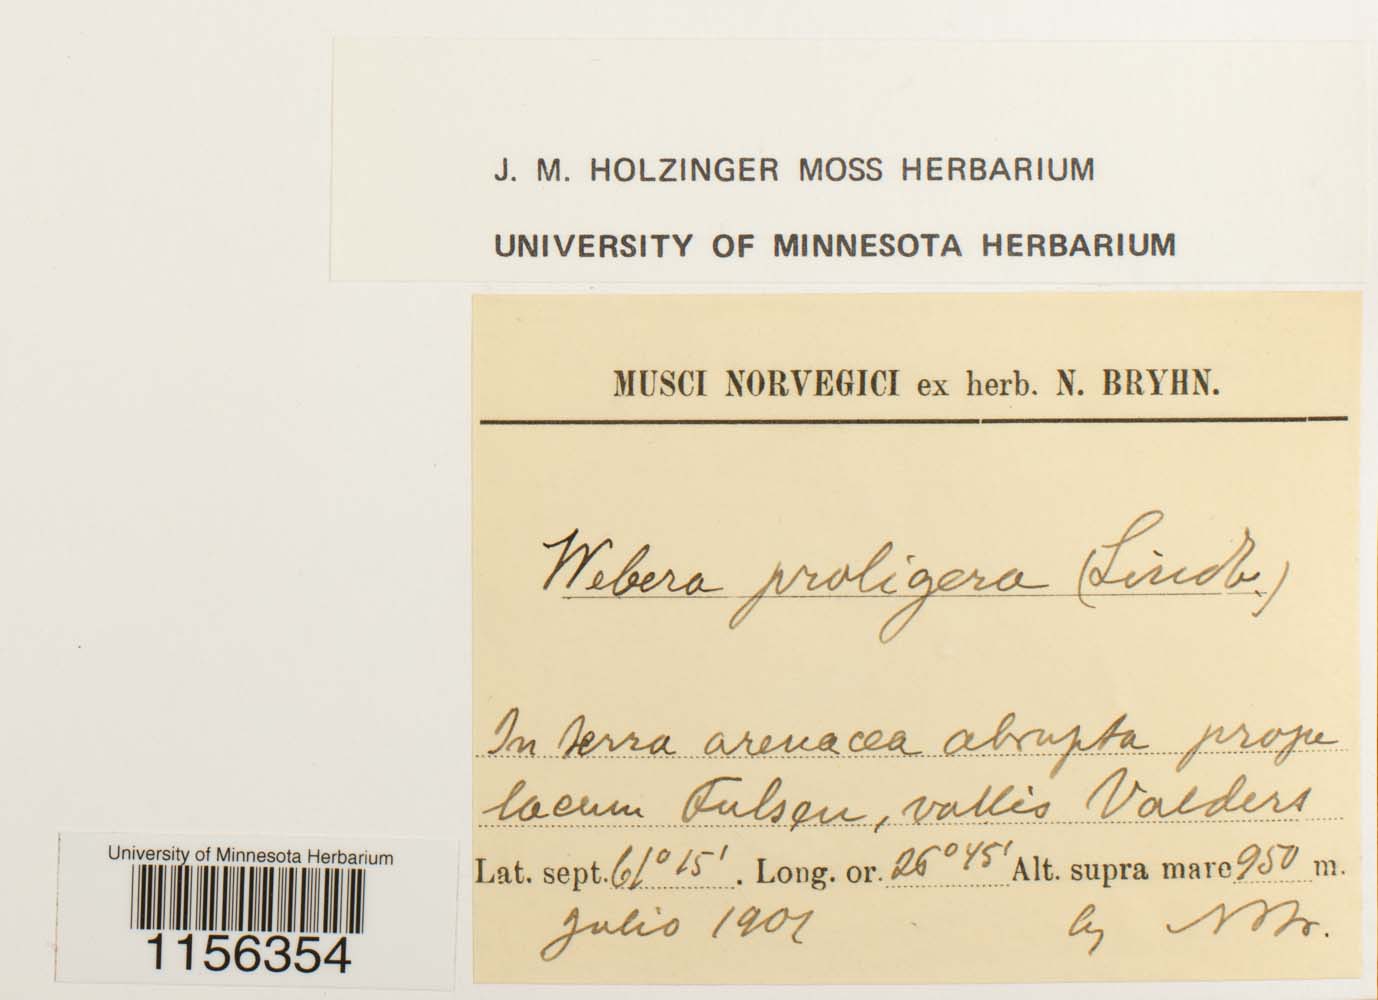 J. M. HOLZINGER MOSS HERBARIUM
UNIVERSITY OF MINNESOTA HERBARIUM
MUSCI NORVEGICI ex herb. N. BRYHN.
Webera proligera (Lindb.)
In terra arenacea abrupta prope
lacum Fulsen, vallis Valders
Lat. sept. 61° 15'. Long. or. 26° 45' Alt. supra mare 950 m.
Julio 1901 lg NBr.
University of Minnesota Herbarium
1156354